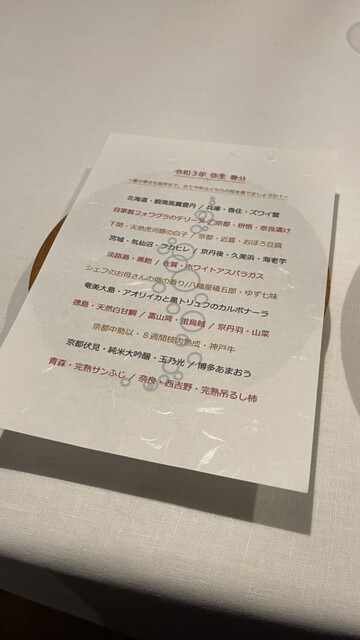 令和3年 弥生 春分
〜暑さ寒さも彼岸まで。さて今年はどちらの桜を愛でましょうか！〜
北海道・蝦夷馬糞雲丹 / 兵庫・香住・ズワイ蟹
自家製フォワグラのテリーヌ / 京都・桝悟・奈良漬け
下関・天然虎河豚の白子 / 京都・近喜・おぼろ豆腐
宮城・気仙沼・フカヒレ / 京丹後・久美浜・海老芋
淡路島・黒鮑 / 佐賀・ホワイトアスパラガス
シェフのお母さんの畑の香り/八幡屋礒五郎・ゆず七味
奄美大島・アオリイカと黒トリュフのカルボナーラ
徳島・天然白甘鯛 / 富山湾・蛍烏賊 / 京丹羽・山菜
京都中勢以・８週間枝肉熟成・神戸牛
京都伏見・純米大吟醸・玉乃光 / 博多あまおう
青森・完熟サンふじ / 奈良・西吉野・完熟吊るし柿